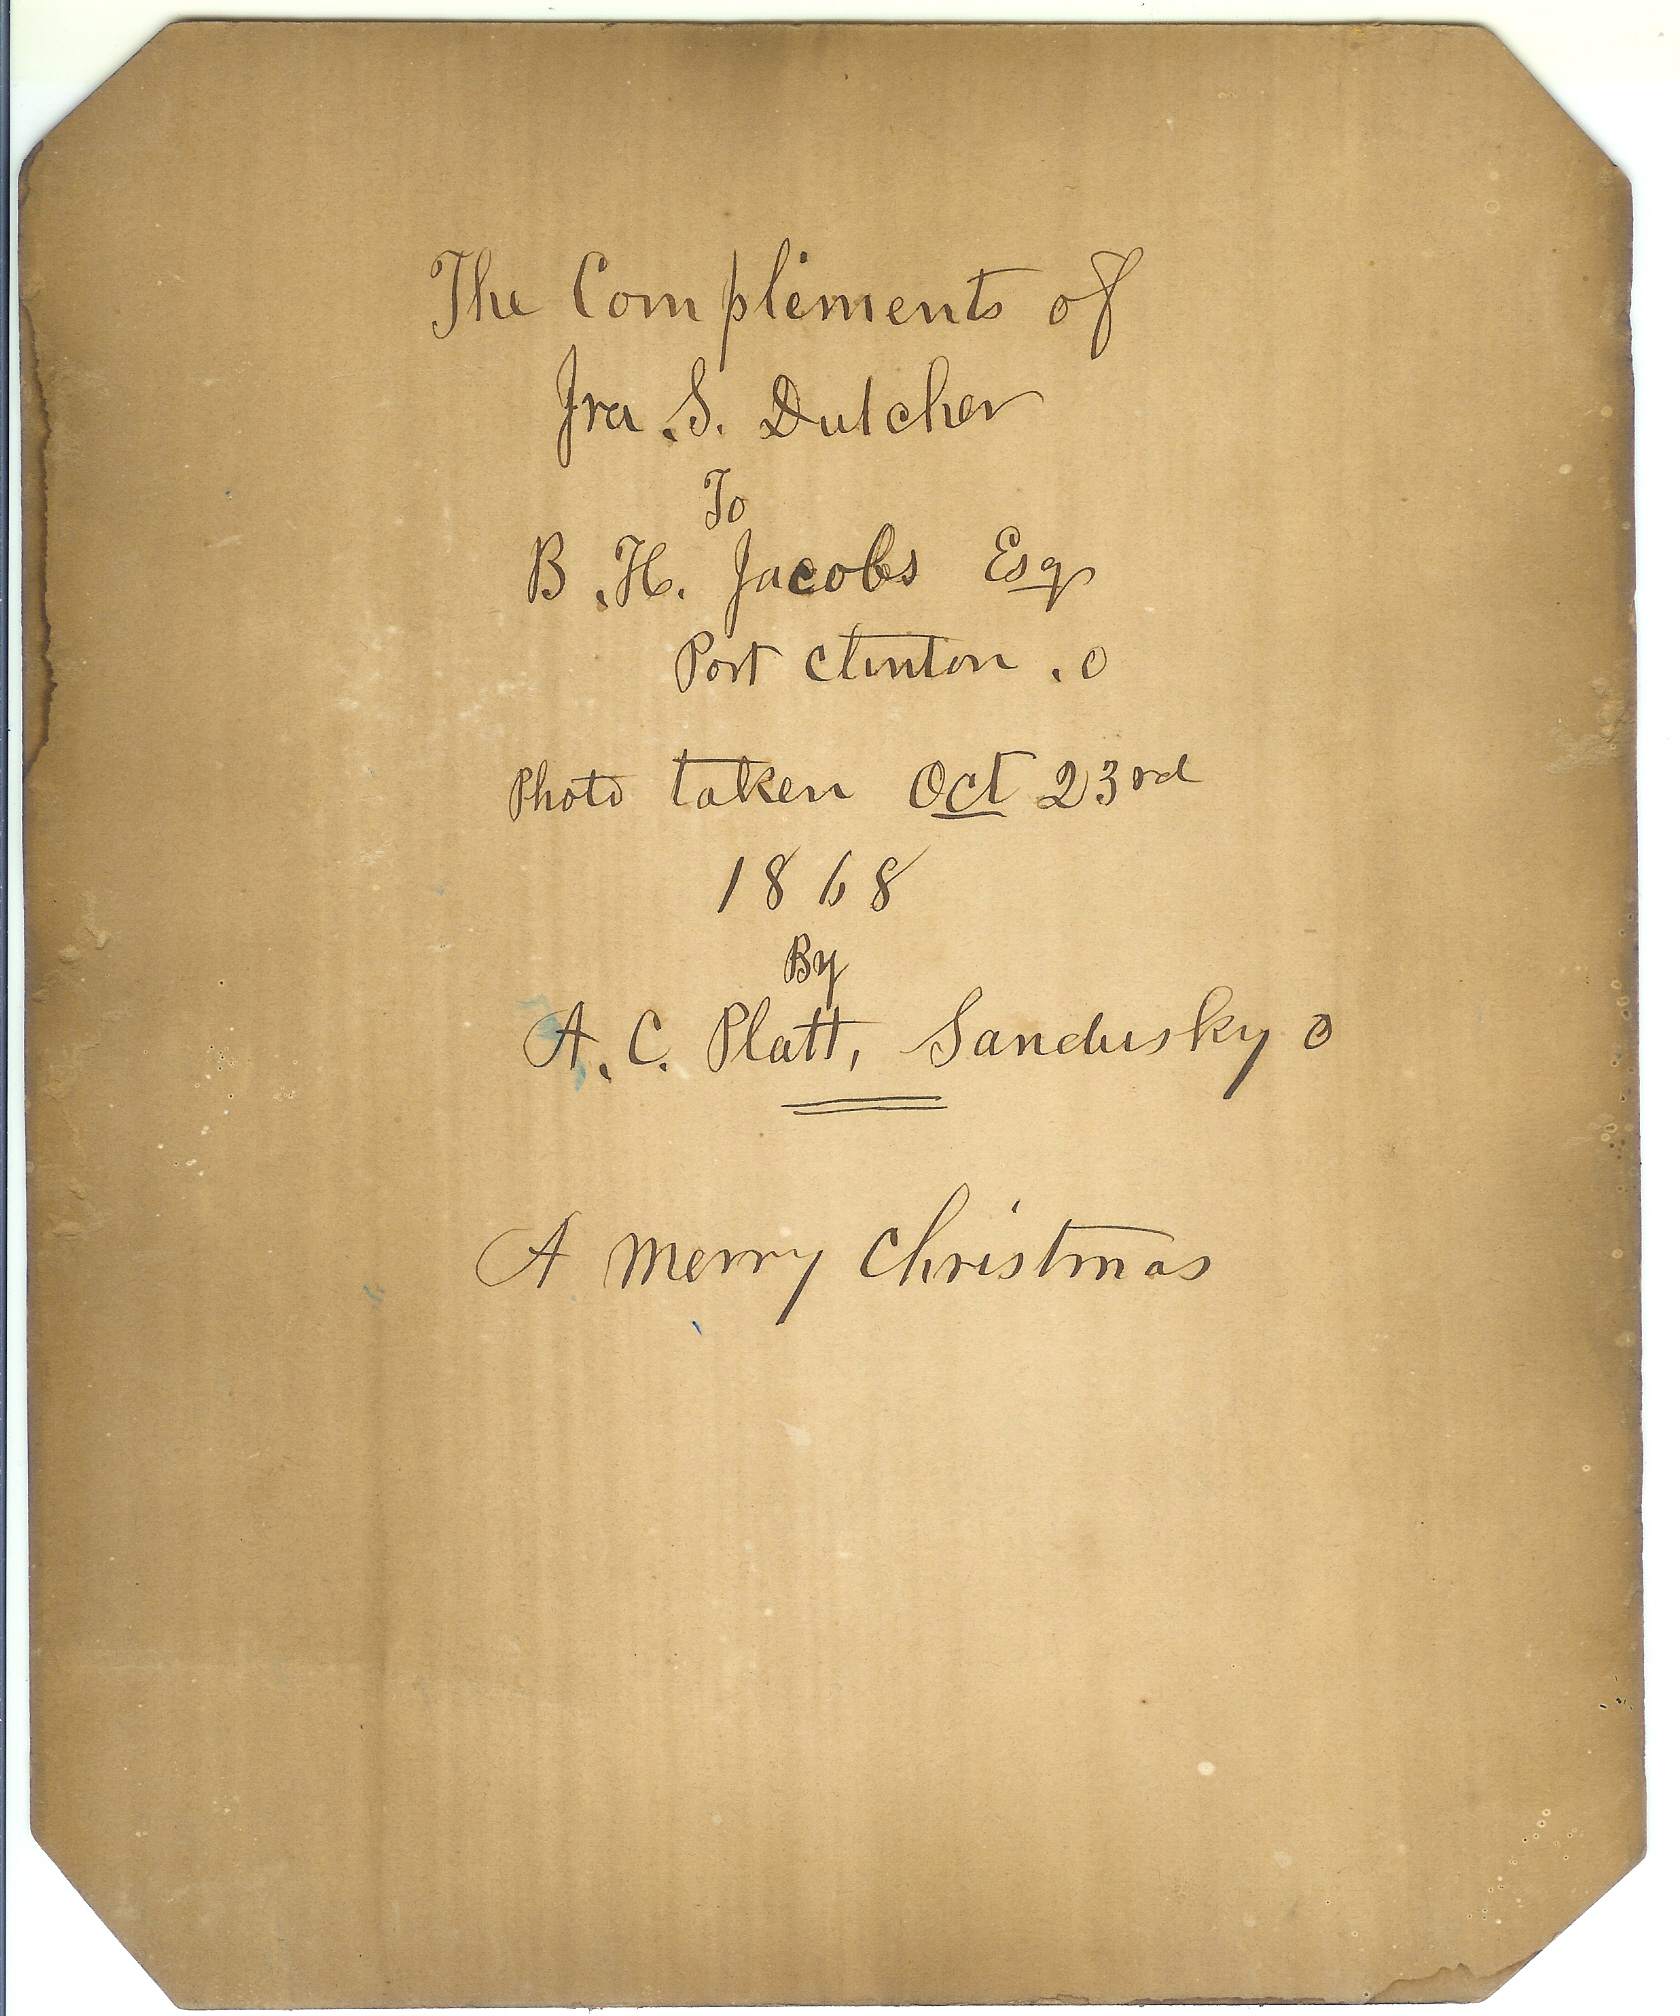 The Compliments of
Ira . S. Dutcher
To
B . H. Jacobs Esq
Port Clinton . O
Photo taken Oct 23rd
1868
By
A. C. Platt, Sandusky O
A Merry Christmas